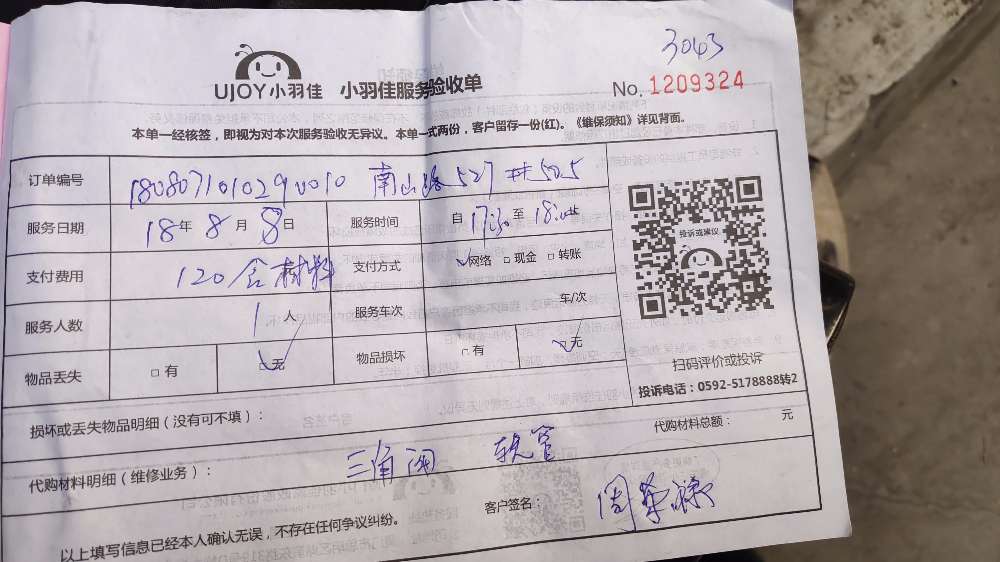 3043
UJOY小羽佳 小羽佳服务验收单
No. 1209324
本单一经核签，即视为对本次服务验收无异议。本单一式两份，客户留存一份(红)。《维保须知》详见背面。
订单编号 1808071010290010 南山路527#505
服务日期 18年 8月 8日 服务时间 自 17:30 至 18:00
支付费用 120含材料 支付方式 网络 现金 转账
服务人数 1人 服务车次 车/次
物品丢失 有 无 物品损坏 有 无
投诉或建议
扫码评价或投诉
投诉电话：0592-5178888转2
损坏或丢失物品明细（没有可不填）：
代购材料总额： 元
代购材料明细（维修业务）： 三角阀 软管
以上填写信息已经本人确认无误，不存在任何争议纠纷。
客户签名： 周